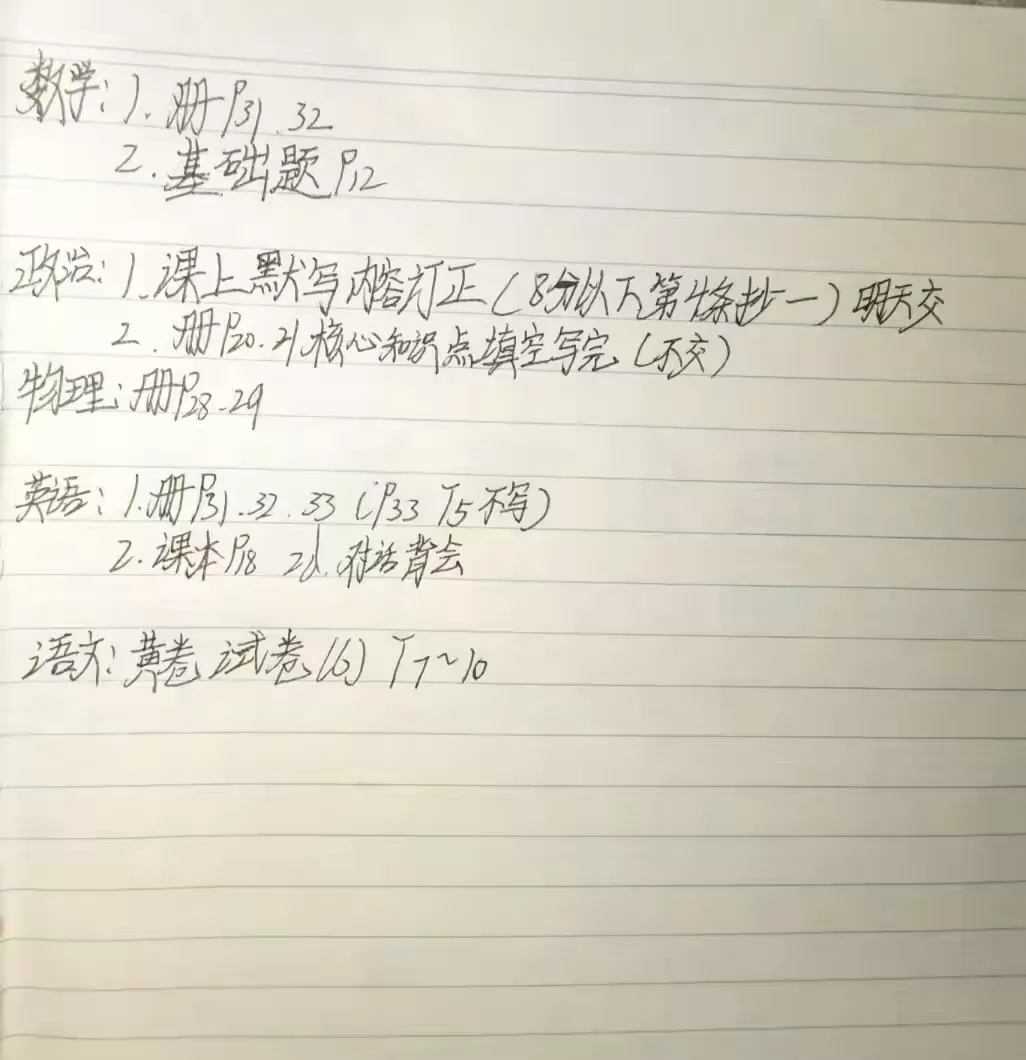 数学:1.册P31.32
2.基础题P12
政治:1.课上默写内容订正(8分以下第4条抄一)明天交
2.册P20.21核心知识点填空写完(不交)
物理:册P28-29
英语:1.册P31.32.33(P33 T5不写)
2.课本P18 2d.对话背会
语文:黄卷 试卷(6) T7~10